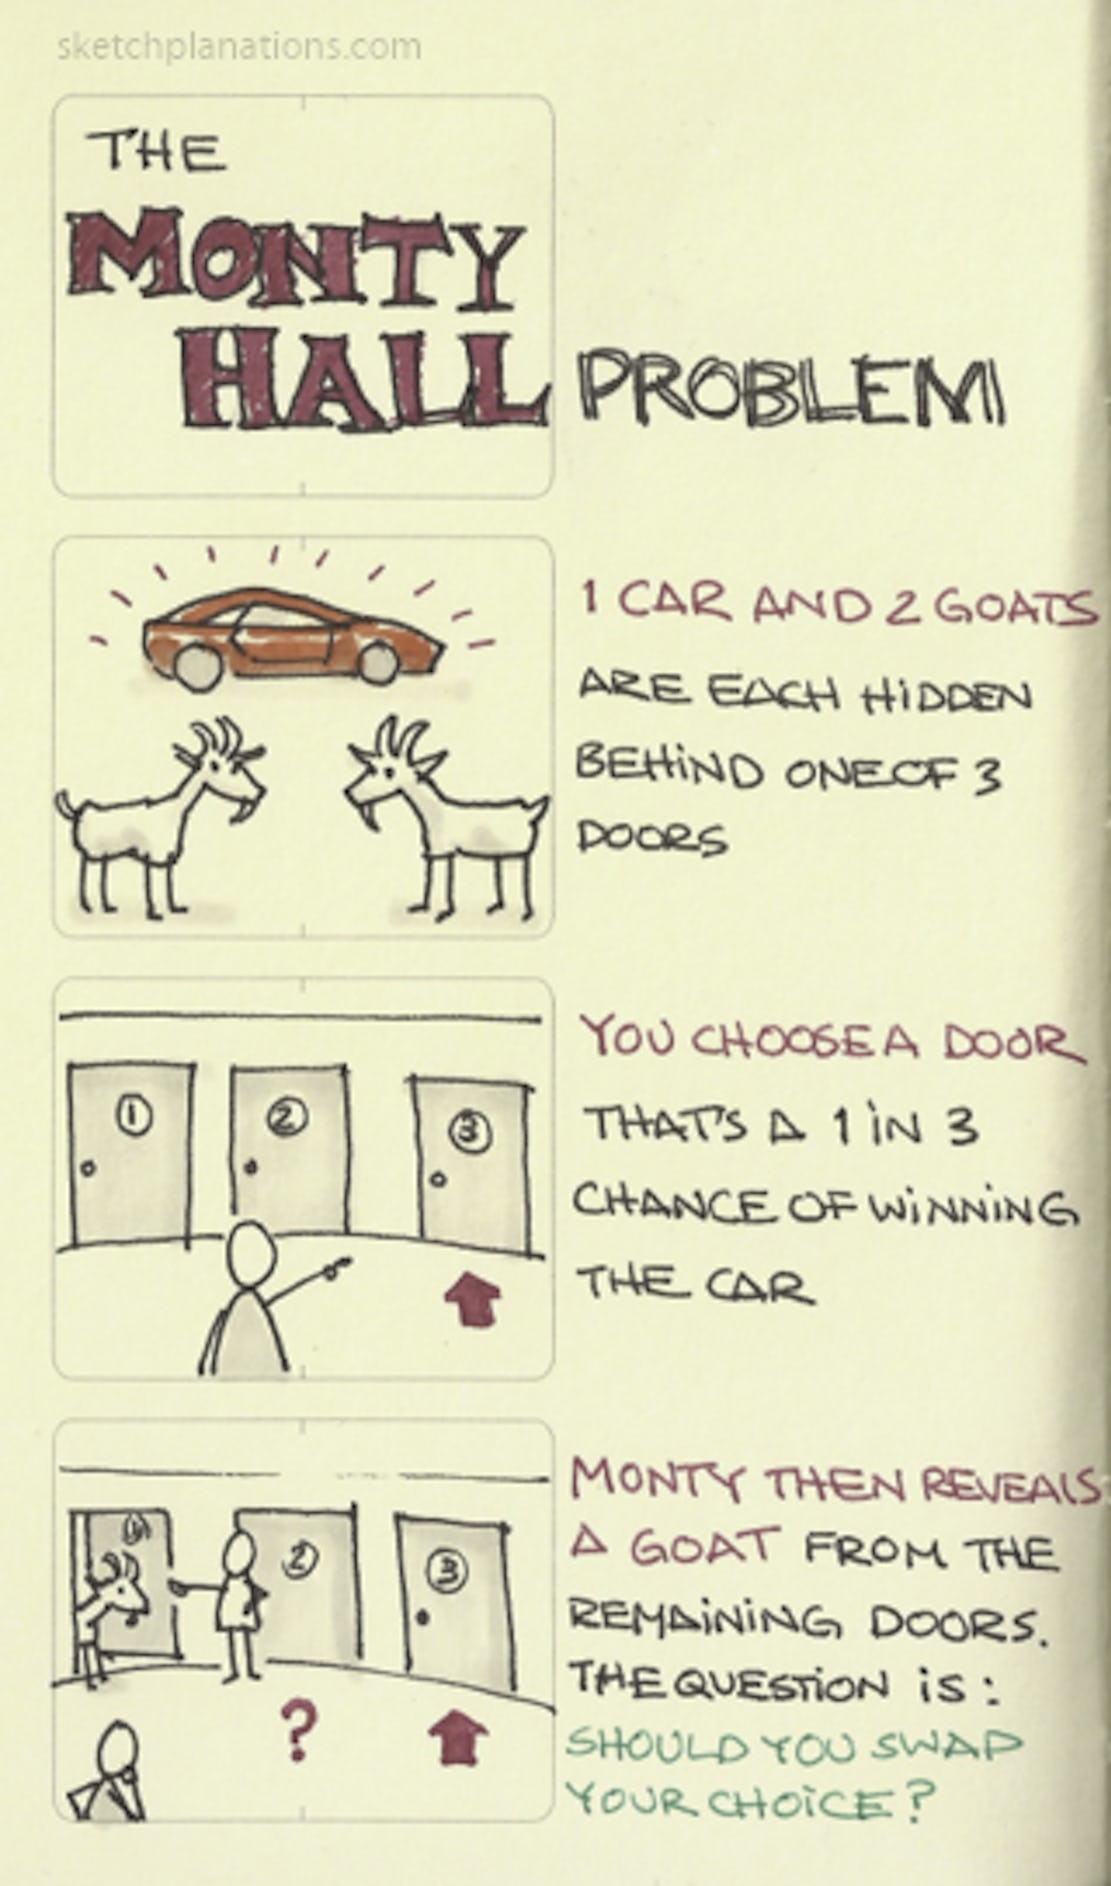 sketchplanations.com
THE
MONTY
HALL PROBLEM
1 CAR AND 2 GOATS
ARE EACH HIDDEN
BEHIND ONE OF 3
DOORS
1
2
3
YOU CHOOSE A DOOR
THAT'S A 1 IN 3
CHANCE OF WINNING
THE CAR
1
2
3
?
MONTY THEN REVEALS
A GOAT FROM THE
REMAINING DOORS.
THE QUESTION IS:
SHOULD YOU SWAP
YOUR CHOICE?